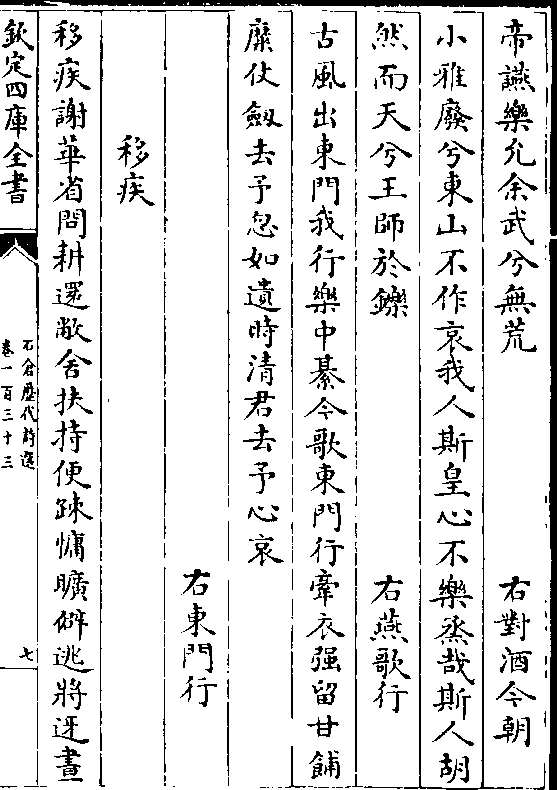 帝讌樂允余武兮無荒　右對酒今朝
小雅廢兮東山不作哀我人斯皇心不樂烝哉斯人胡
然而天兮王師於鑠　右燕歌行
古風出東門我行樂中綦今歌東門行牽衣强留甘餔
糜仗劒去予忽如遺時清君去予心哀
右東門行
移疾
移疾謝華省問耕還敝舍扶持便踈慵曠僻逃將迓晝
欽定四庫全書
石倉歷代詩選
卷一百三十三
七